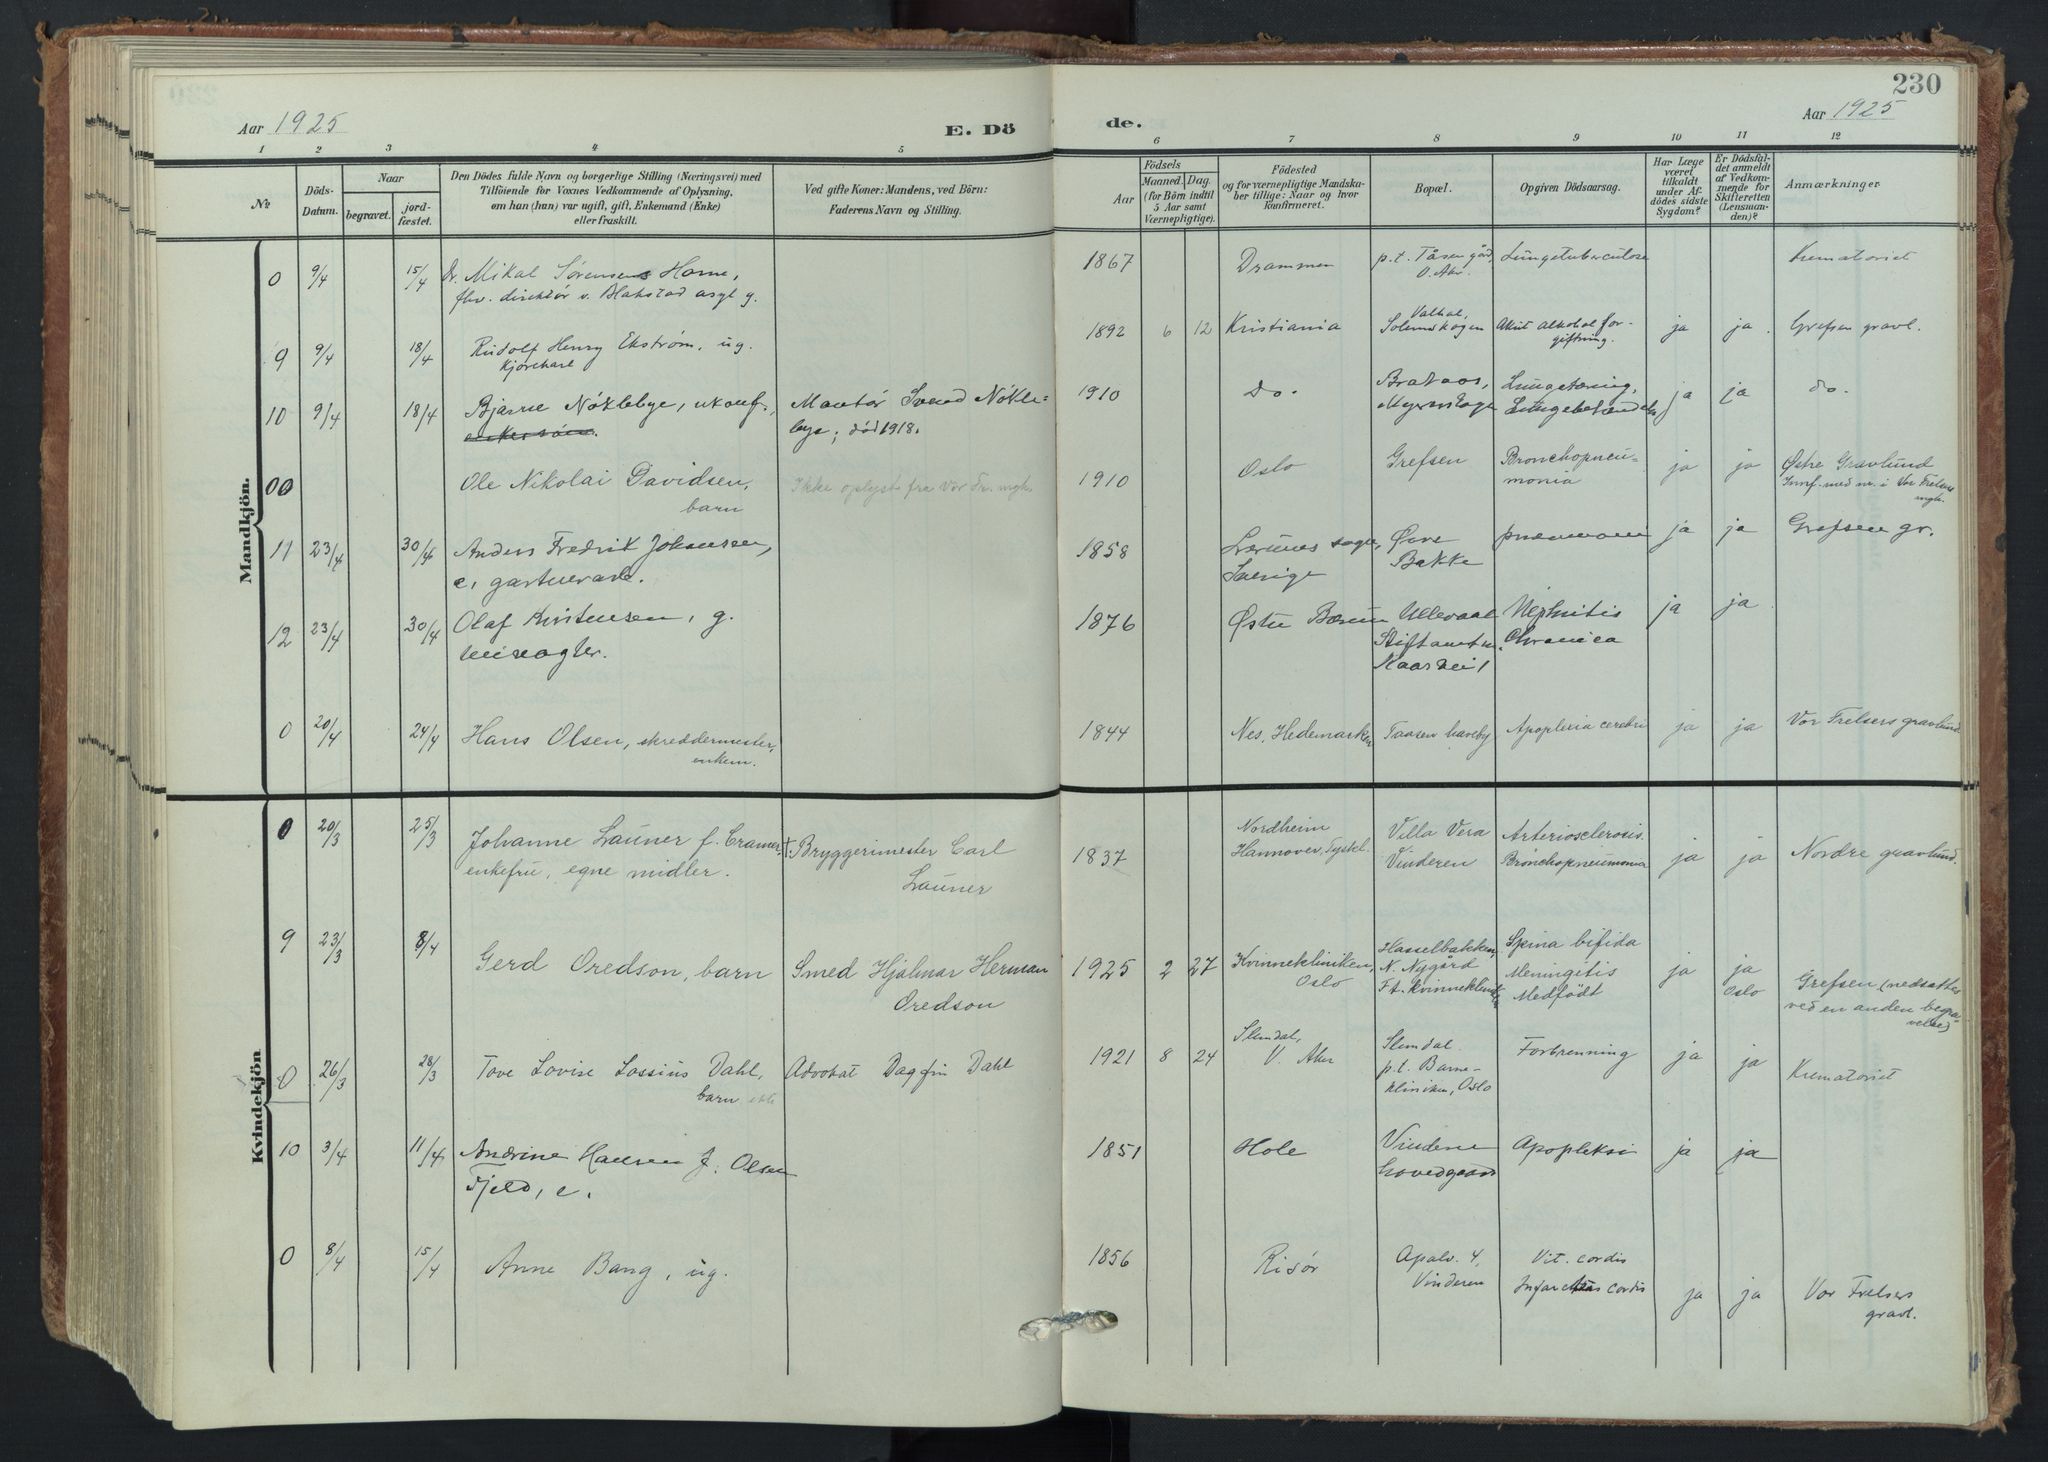 230
Aar 1925
E. Dö
de.
Aar 1925
1 2 3 4 5 6 7 8 9 10 11 12
No
Döds-
Datum.
Naar
begravet.
jord-
fæstet.
Den Dödes fulde Navn og borgerlige Stilling (Næringsvei) med
Tilföiende for Voxnes Vedkommende af Oplysning,
om han (hun) var ugift, gift, Enkemand (Enke)
eller fraskilt.
Ved gifte Koner: Mandens, ved Börn:
Faderens Navn og Stilling.
Födsels
Aar
Maaned. Dag.
(for Börn indtil
5 Aar samt
Værnepligtige).
Födested
og for værnepligtige Mandska-
ber tillige: Naar og hvor
konfirmeret.
Bopæl.
Opgiven Dödsaarsag.
Har Læge
været
tilkaldt
under Af-
dödes sidste
Sygdom?
Er Dödsfal-
det anmeldt
af Vedkom-
mende for
Skifteretten
(Lensman-
den)?
Anmærkninger
Mandkjön.
0 9/4 15/4 Dr. Mikal Sørensens Home,
fhv. direktør v. Blakstad asyl g.
1867 Drammen p.t. Tåsen gård, Lungetuberculose Krematoriet
Ø. Aker
9 9/4 18/4 Rudolf Henry Ekstrøm, ug.
Kjørekarl
1892 6 12 Kristiania Valhal, Akut alkohol for- ja ja. Grefsen gravl.
Solemskogen giftning.
10 9/4 18/4 Bjarne Nøklebye, ukonf., Montør Svend Nøkle-
bye; død 1918.
1910 Do. Bråtaas, Lungetæring, ja ja do.
Myrerskogen
00 Ole Nikolai Davidsen, Ikke oplyst fra Vor Fr. mgh.
barn
1910 Oslo Grefsen Bronchopneu- ja ja Østre Gravlund
monia Innf. med nr. i Vor Frelsers
mgh.
11 23/4 30/4 Anders Fredrik Johansen,
e, gartnerarb.
1858 sogn, Øvre pneumoni ja ja Grefsen gr.
Sverige Bakke
12 23/4 30/4 Olaf Kristensen, g.
veivogter.
1876 Østre Bærum Ullevaal Nephritis ja ja
Stiftamtm. Chronica
Kaas vei 1
0 20/4 24/4 Hans Olsen, skreddermester,
enkem.
1844 Nes, Hedemarken Taasen haveby Apoplexia cerebri ja ja Vor Frelsers gravlund
Kvindekjön
0 20/3 25/3 Johanne Launer f. Cramer, † Bryggerimester Carl
enkefru, egne midler. Launer
1837 Nordheim Villa Vera Arteriosclerosis. ja ja Nordre gravlund.
Hannover, Tyskl. Vinderen Bronchopneumonia
9 23/3 8/4 Gerd Oredson, barn Smed Hjalmar Herman
Oredson
1925 2 27 Kvinnekliniken, Hasselbakken, Spina bifida ja ja Grefsen (nedsattes
Oslo N. Nygård Meningitis Oslo ved en anden begra-
Ft. kvinneklinikken Medfödt velse)
0 26/3 28/3 Tove Lovise Lossius Dahl, Advokat Dagfin Dahl
barn ekte
1921 8 24 Slemdal, Slemdal. Forbrenning ja ja Krematoriet
V. Aker p.t. Barne-
kliniken, Oslo
10 3/4 11/4 Andrine Hansen f. Olsen
Fjeld, e.
1851 Hole Vinderen Apopleksi ja ja
hovedgaard
0 8/4 15/4 Anne Bang, ug.
1856 Risør Apalv. 4, Vit. cordis
Vinderen Infarctus cordis ja ja Vor Frelsers
gravl.